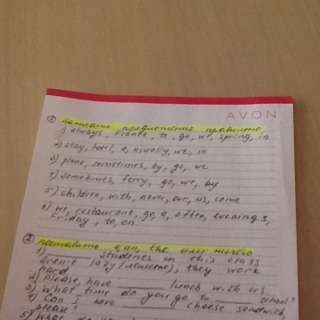 AVON
① написать предложения правильно
1) always, France, to, go, we, spring, in
2) stay, hotel, a, usually, we, in
3) plane, sometimes, by, go, we
4) sometimes, ferry, go, we, by
5) children, with, never, our, us, come
6) we, restaurant, go, a, often, evenings,
Friday, to, on
② can, the или ничего
1) students in this class
aren't lazy (ленивые), they work
hard
2) Please, have lunch with us
3) What time do you go to school?
4) Can I have cheese sandwich,
please?